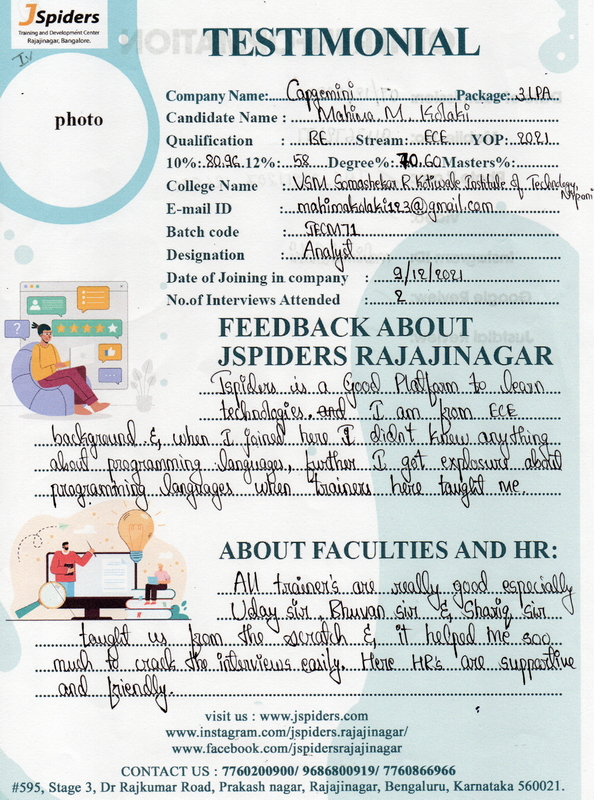 JSpiders
Training and Development Center
Rajajinagar, Bangalore.
TESTIMONIAL
photo
Company Name: Capgemini Package: 3 LPA
Candidate Name : Mahima. M. Kolaki
Qualification : BE Stream: ECE YOP: 2021
10%: 80.96 12%: 58 Degree%: 70.60 Masters%:
College Name : VSM Somashekar R. Kotiwale Institute of Technology, Nipani
E-mail ID : mahimakolaki123@gmail.com
Batch code : JECM71
Designation : Analyst
Date of Joining in company : 9/12/2021
No.of Interviews Attended : 2
FEEDBACK ABOUT
JSPIDERS RAJAJINAGAR
Jspiders is a Good Platform to learn
technologies. and I am from ECE
background & when I joined here I didn't know anything
about programming languages, further I got explosure about
programming languages when trainers here taught me.
ABOUT FACULTIES AND HR:
All trainer's are really good especially
Uday sir, Bhuvan sir & Shariq sir
taught us from the scratch & it helped me soo
much to crack the interviews easily. Here HR's are supportive
and friendly.
visit us : www.jspiders.com
www.instagram.com/jspiders.rajajinagar/
www.facebook.com/jspidersrajajinagar
CONTACT US : 7760200900/ 9686800919/ 7760866966
#595, Stage 3, Dr Rajkumar Road, Prakash nagar, Rajajinagar, Bengaluru, Karnataka 560021.